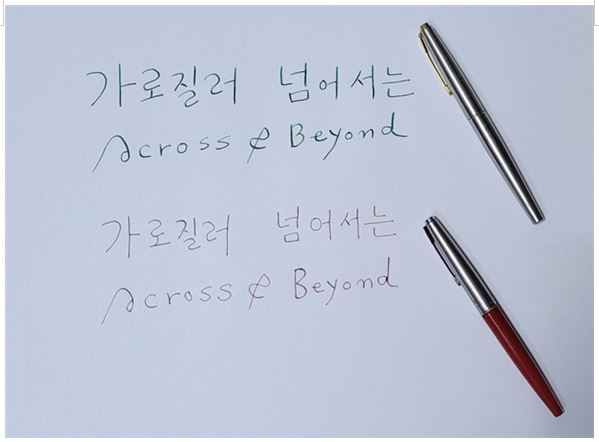 가로질러 넘어서는
Across & Beyond
가로질러 넘어서는
Across & Beyond